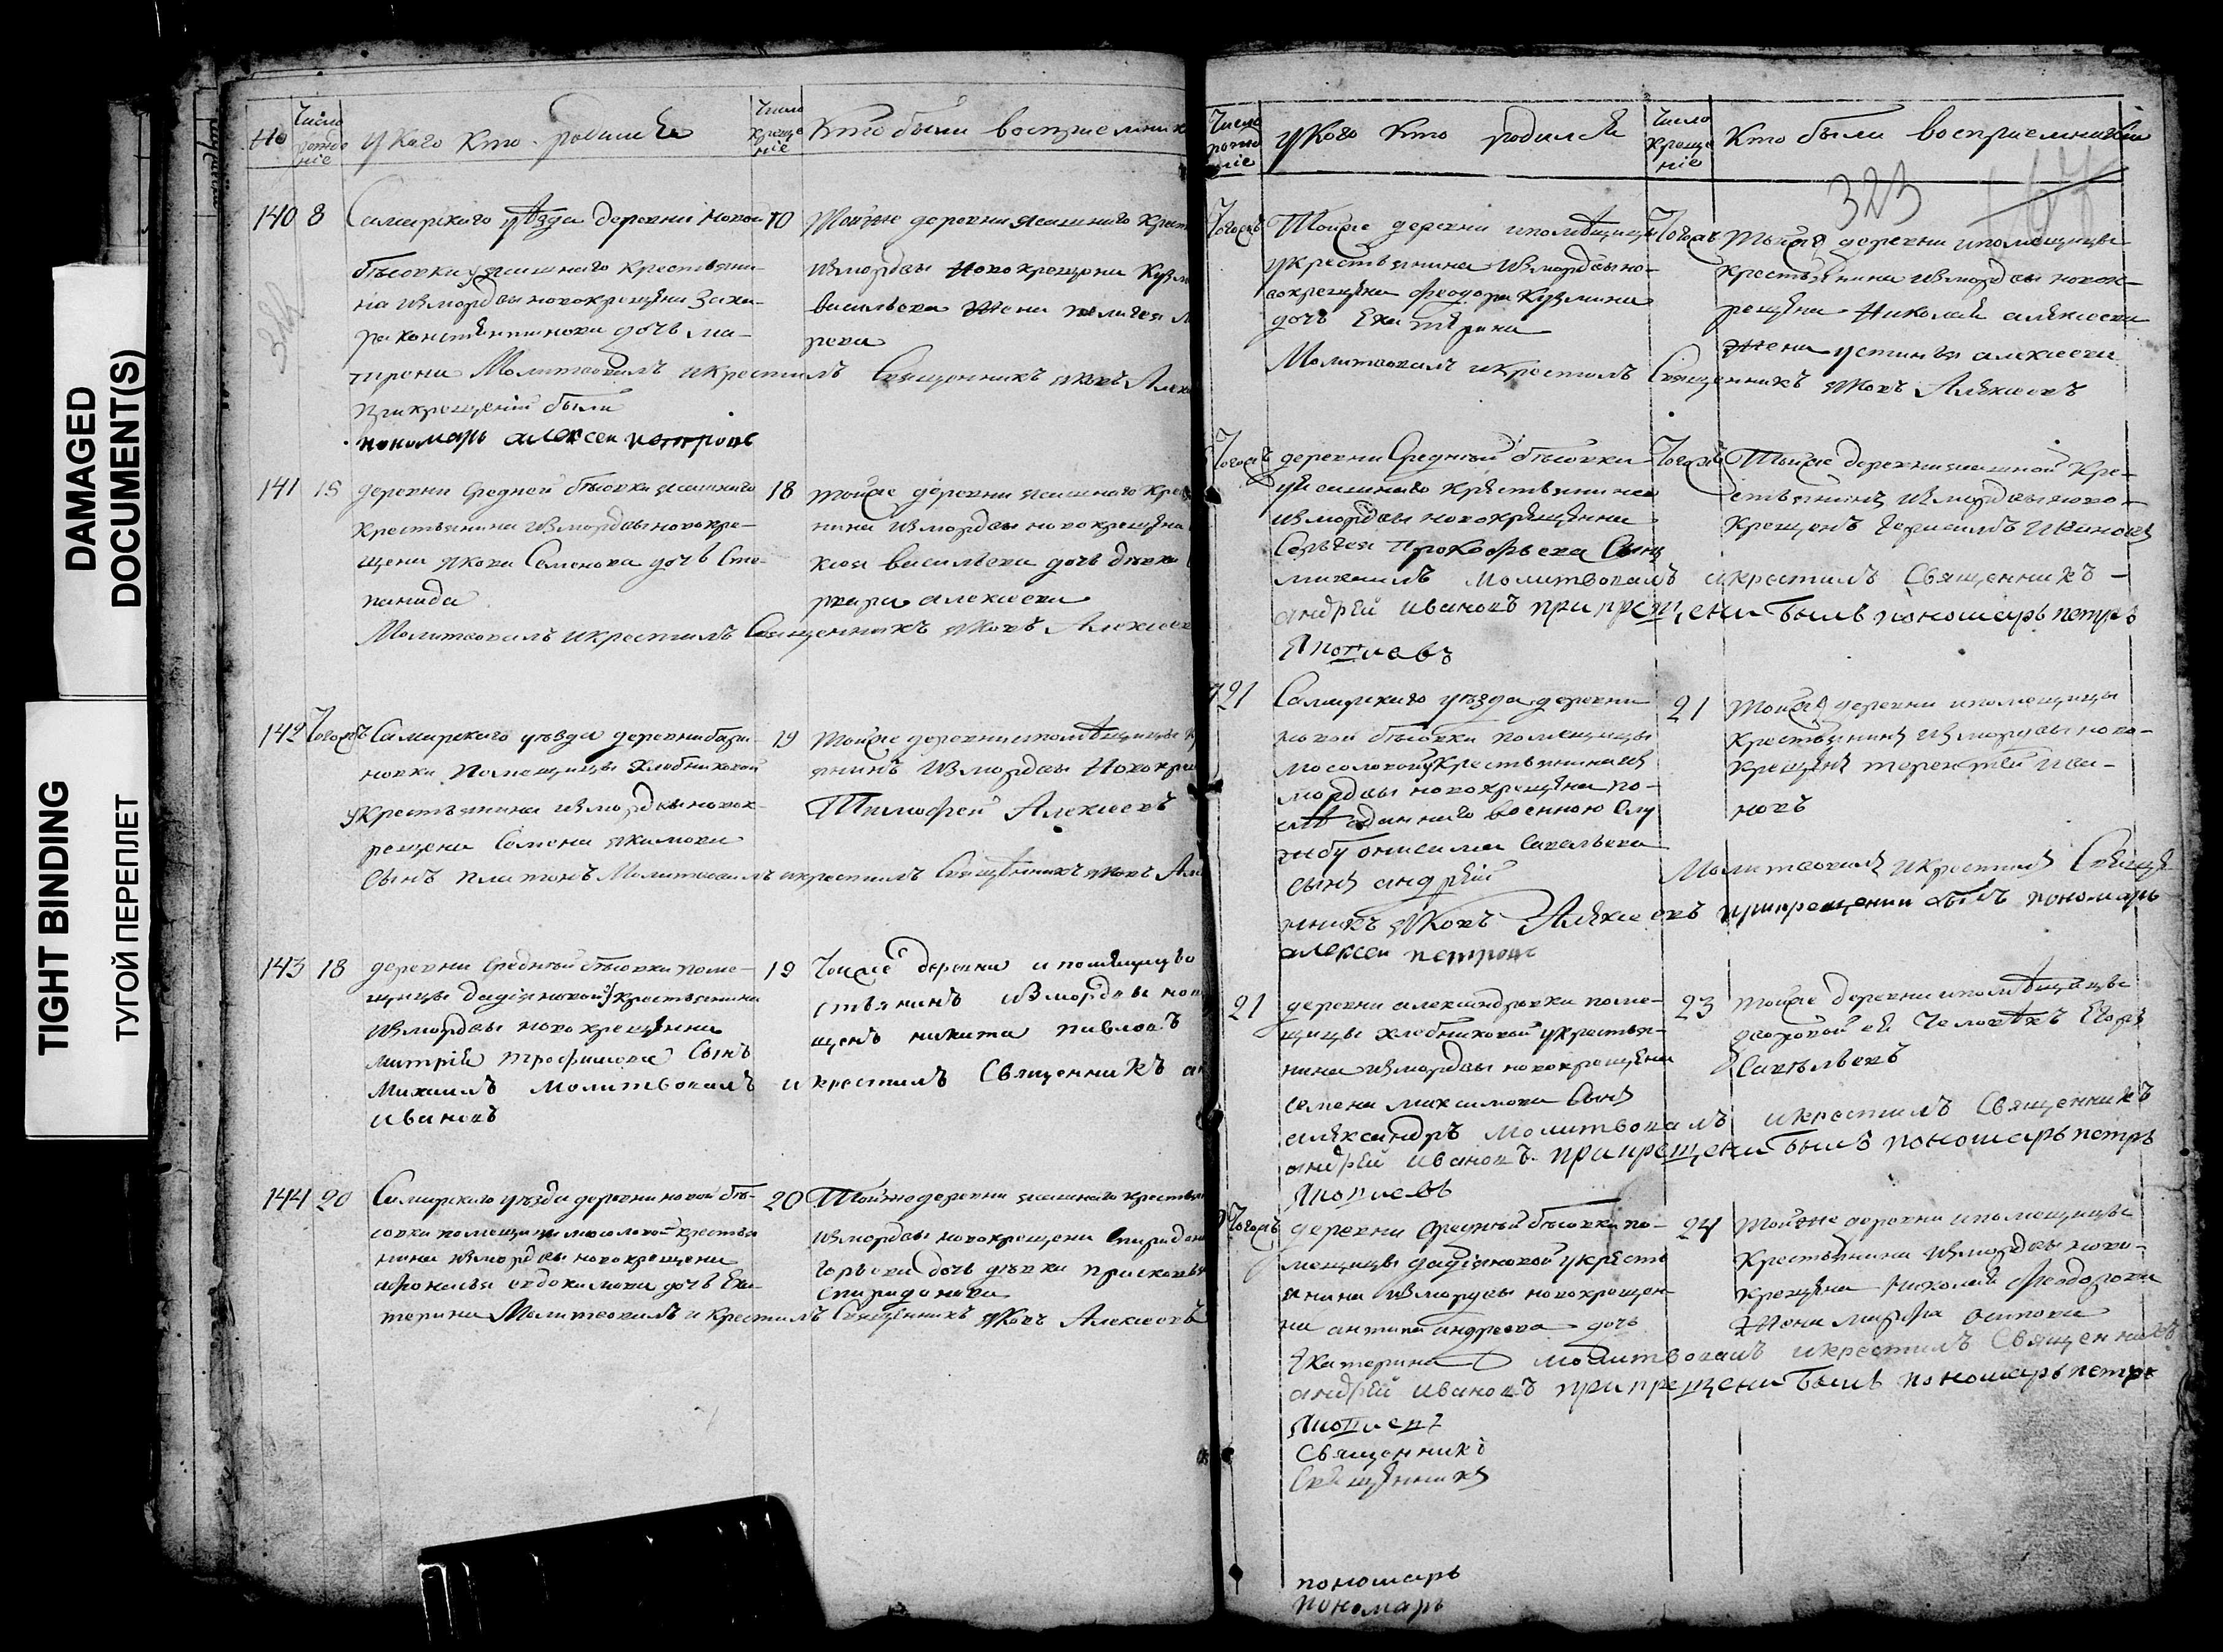 DAMAGED
DOCUMENT(S)
TIGHT BINDING
ТУГОЙ ПЕРЕПЛЕТ
№
Число рожденіе
у Кого Кто родился
Число крещеніе
Кто были восприемник
140 8 Самарского уѣзда деревни новой 10
бѣсовки ясашнаго крестьяни-
на измордвы новокрещена Заха-
ра константинова дочь ма-
трена Молитвовалъ и крестилъ Священникъ Яковъ Алек
При крещеніи были
пономарь алексеи петровъ
Тойже деревни ясашнаго крест
измордвы Новокрещена Кузм
васильева жена пелагея
141 15 деревни Средней бѣсовки ясашнаго 18
крестьянина измордвы новокре-
щена Якова Семенова дочь Сте-
панида
Молитвовалъ и крестилъ Священникъ Яковъ Алексеев
тойже деревни ясашнаго кре
нина измордвы новокрещена
васильева дочь девка
алексеева
142 Тогожъ Самарского уѣзда деревни 19
новки Помещицы Хлебниковой
у Крестьянина измордвы новок-
рещена Семена Якимова
Сынъ платонъ Молитвовалъ и крестилъ Священникъ Яковъ Але
Тойже деревни ипомѣщицы
янинъ измордвы Новокре
Тимофей Алексеевъ
143 18 деревни Средней бѣсовки поме- 19
щицы крестьянина
измордвы новокрещенна
митрія трофимова Сынъ
Михаилъ молитвовалъ и крестилъ Священникъ ан
ивановъ
Тойже деревни и помещицы
стьянинъ измордвы ново
щенъ никита павловъ
144 20 Самарского уѣзда деревни новой бѣ- 20
совки помещицы мосоловой крестья
нина измордвы новокрещена
афонасья евдокимова дочь Ека-
терина Молитвовалъ и крестилъ Священникъ Яковъ Алексеевъ
Тойже деревни ясашнаго крестья
измордвы новокрещена спиридон
дочь девка прасковья
Спиридонова
Число рожденіе
у Кого Кто родился
Число крещеніе
Кто были восприемники
323
Тогожъ Тойже деревни ипомѣщицы Тогожъ
у крестьянина измордвы но-
вокрещена Феодора Кузмина
дочь Екатерина
Молитвовалъ и крестилъ Священникъ Яковъ Алексеевъ
Тойже деревни ипомещицы
крестьянина измордвы новок-
рещена Николая алексеева
жена устинья алексеева
Тогожъ деревни Средней бѣсовки Тогожъ
у ясашнаго крестьянина
измордвы новокрещенна
Сергея Прокофьева Сынъ
михаилъ молитвовалъ и крестилъ Священникъ
андрей ивановъ при прещени былъ пономарь петръ
Тойже деревни ясашной кре-
стьянинъ измордвы ново-
крещенъ герасимъ Ивановъ
21 Самарскаго уѣзда деревни 21
новой бѣсовки помещицы
мосоловой у крестьянина из
мордвы новокрещена по-
военною слу
жбу онисима Савельева
сынъ андрей
Молитвовалъ и крестилъ Священ
никъ Яковъ Алексеевъ прикрещении былъ пономарь
алексеи петровъ
Тойже деревни ипомещицы
крестьянинъ измордвы ново-
крещенъ терентей ива-
новъ
21 деревни александровки поме- 23
щицы хлебниковой у крестья-
нина измордвы новокрещена
семена максимова Сынъ
александръ молитвовалъ и крестилъ Священникъ
андрей ивановъ при прещени былъ пономарь петръ
Тойже деревни ипомѣщицы
дворовой ея Человѣкъ Егоръ
Савельевъ
Тогожъ деревни Средней бѣсовки по- 24
мещицы у кресть
янина измордвы новокрещен-
на антипа андреева дочь
Екатерина молитвовалъ и крестилъ Священникъ
андрей ивановъ при прещени былъ пономарь петръ
Тойже деревни ипомещицы
Крестьянина измордвы ново-
крещена Николая Феодорова
жена марфа осипова
Священникъ
Священникъ
пономарь
пономарь